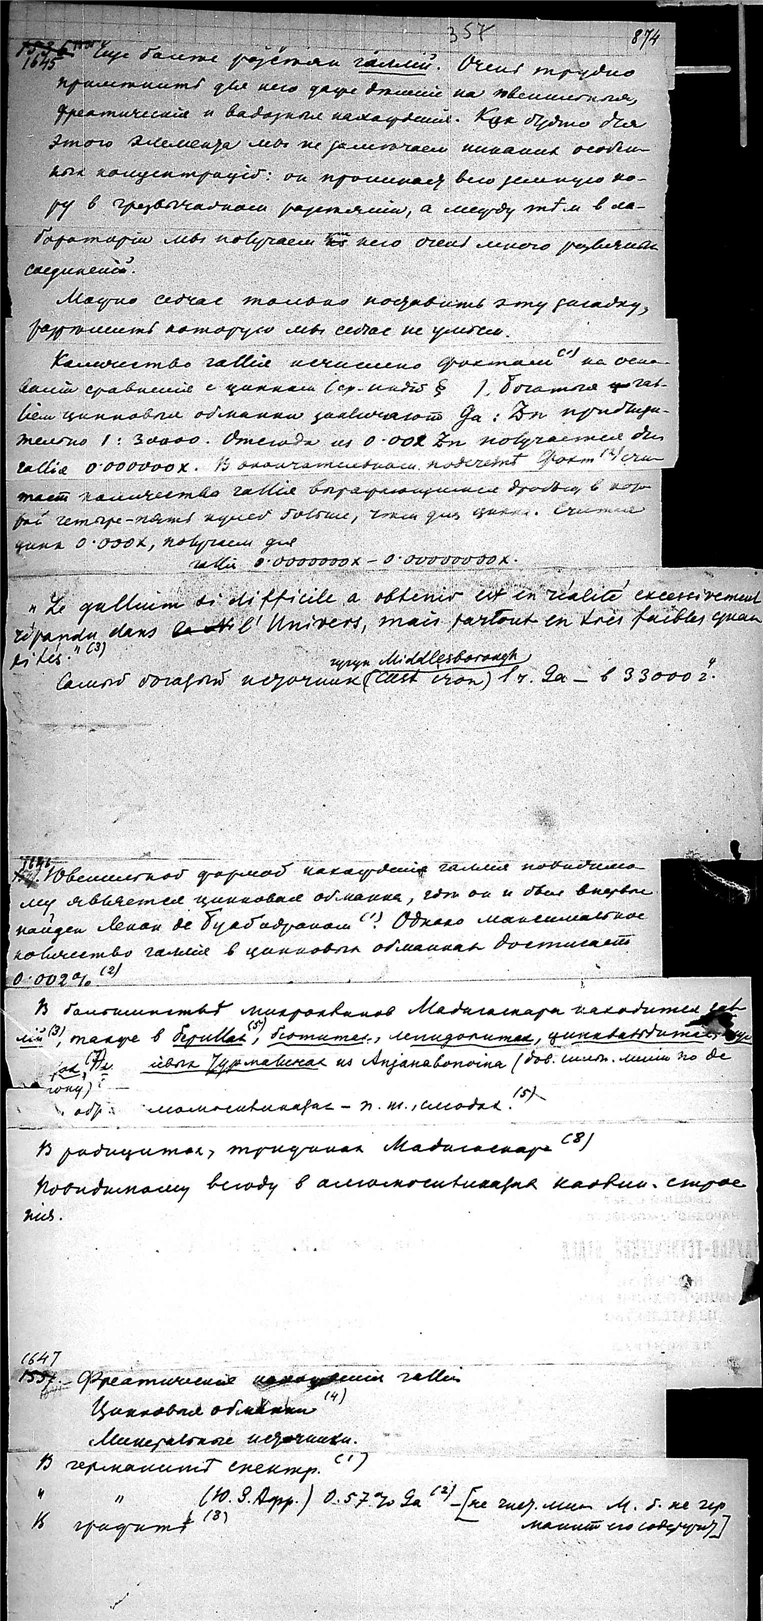 357
874
1645 Еще более рассеян галлий. Очень трудно
применить для него даже деление на ювенильныя,
фреатическия и вадозныя нахождения. Как будто для
этого элемента мы не замечаем никаких особен-
ных концентраций: он проникает всю земную ко-
ру в чрезвычайном рассеянии, а между тѣм в ла-
боратории мы получаем из него очень много различных
соединений.
Можно сейчас только поставить эту загадку,
разрешить которую мы сейчас не умеем.
Количество галлия исчислено Фогтом (1) на осно-
вании сравнения с цинком (ср. § ). Богатыя гал-
лием цинковыя обманки заключают Ga : Zn приблизи-
тельно 1 : 30000. Отсюда из 0.00x Zn получается для
галлия 0.000000x. В окончательном подсчетѣ Фогт (2) счи-
тает количество галлия выражающимся дробью, в кото-
рой четыре-пять нулей больше, чем для цинка. Считая
цинк 0.000x, получаем для
галлия 0.0000000x – 0.00000000x.
„Le gallium si difficile a obtenir est en réalité excessivement
répandu dans l'Univers, mais partout en très faibles quan
tités." (3)
чугун Middlesborough
Самый богатый источник (Cast iron) 1 ч. Ga – в 33000 ч.
1646. Ювенильной формой нахождения галлия повидимо-
му является цинковая обманка, где он и был впервые
найден Лекок де Буабодраном (1). Однако максимальное
количество галлия в цинковых обманках достигает
0.002% (2)
В большинствѣ микроклинов Мадагаскара находится гал
лий (3), также в бериллах (5), биотитах, лепидолитах,
турмалинах из Anjanabonoina
(5)
В родицитах, Мадагаскара (8)
Повидимому всюду в алюмосиликатах каолин. строе
ния.
1647
Фреатическия нахождения галлия
Цинковыя обманки (4)
Минеральные источники.
В германитѣ спектр. (1)
„ „ (Ю.З. Афр.) 0.57% Ga (2) – [не чист. мин. М. б. не гер
манит его содержит]
В (3)